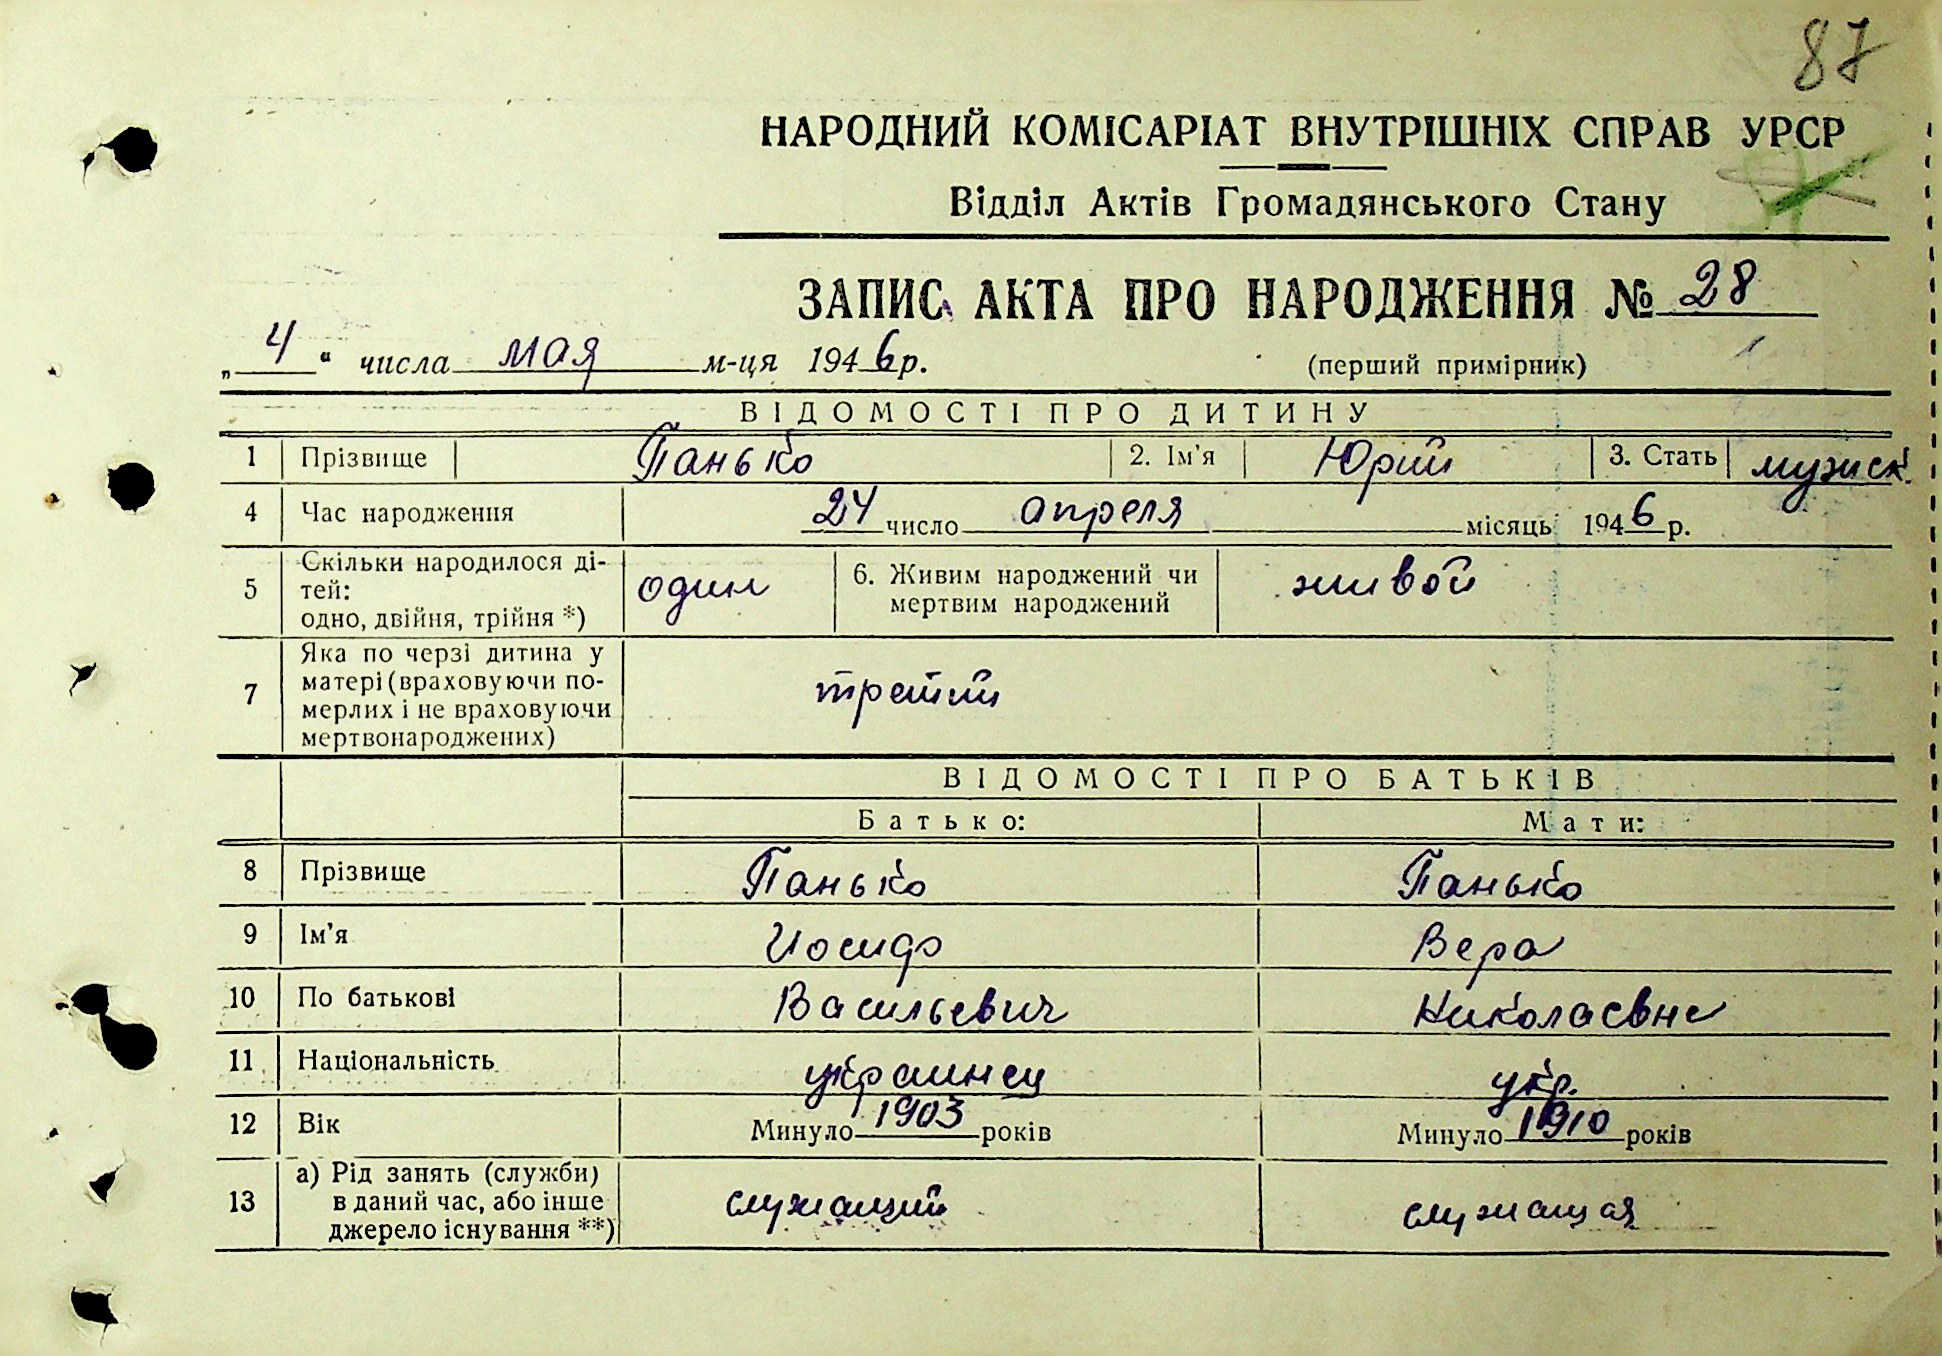 87
НАРОДНИЙ КОМІСАРІАТ ВНУТРІШНІХ СПРАВ УРСР
Відділ Актів Громадянського Стану
ЗАПИС АКТА ПРО НАРОДЖЕННЯ № 28
„4“ числа мая м-ця 1946 р. (перший примірник)
ВІДОМОСТІ ПРО ДИТИНУ
1 Прізвище Панько 2. Ім'я Юрий 3. Стать мужск.
4 Час народження 24 число апреля місяць 1946 р.
5 Скільки народилося ді-
тей:
одно, двійня, трійня *) один 6. Живим народжений чи
мертвим народжений живой
7 Яка по черзі дитина у
матері (враховуючи по-
мерлих і не враховуючи
мертвонароджених) третий
ВІДОМОСТІ ПРО БАТЬКІВ
Батько: Мати:
8 Прізвище Панько Панько
9 Ім'я Иосиф Вера
10 По батькові Васильевич Николаевне
11 Національність украинец укр.
12 Вік Минуло 1903 років Минуло 1910 років
13 а) Рід занять (служби)
в даний час, або інше
джерело існування **) служащий служащая